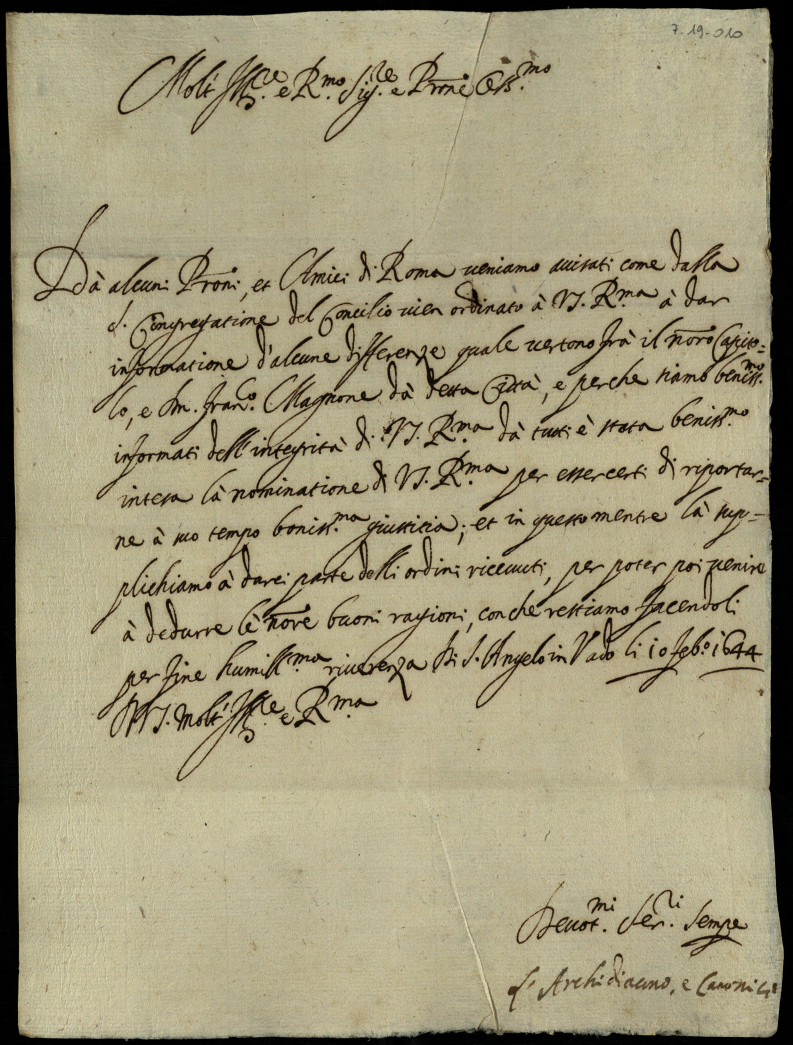 7-19-010
Molt' Ill.re e R.mo Sig.re e Prōne Oss.mo
Dà alcuni Prōni, et Amici di Roma veniamo avisati come dalla
S. Congregatione del Concilio vien ordinato à V.S. R.ma à dar
informatione d'alcune differenze quale vertono frà il nōro Capito=
lo, e Franc.o Magnone dà detta Città, e perche siamo beniss.mo
informati dell'integrità di V.S. R.ma dà tutti è stata beniss.mo
intesa là nominatione di V.S. R.ma per esser certi di riportar=
ne à suo tempo boniss.ma giustitia; et in questo mentre là sup=
plichiamo à darci parte delli ordini ricevuti, per poter poi venire
à dedurre lè nōre buoni ragioni, con che restiamo facendoli
per fine humiliss.ma riverenza Di S. Angelo in Vado li 10 Feb.o 1644
Di V.S. Molt' Ill.re e R.ma
Devot.mi Ser.ri Sempre
L'Archidiacono, e Canonici